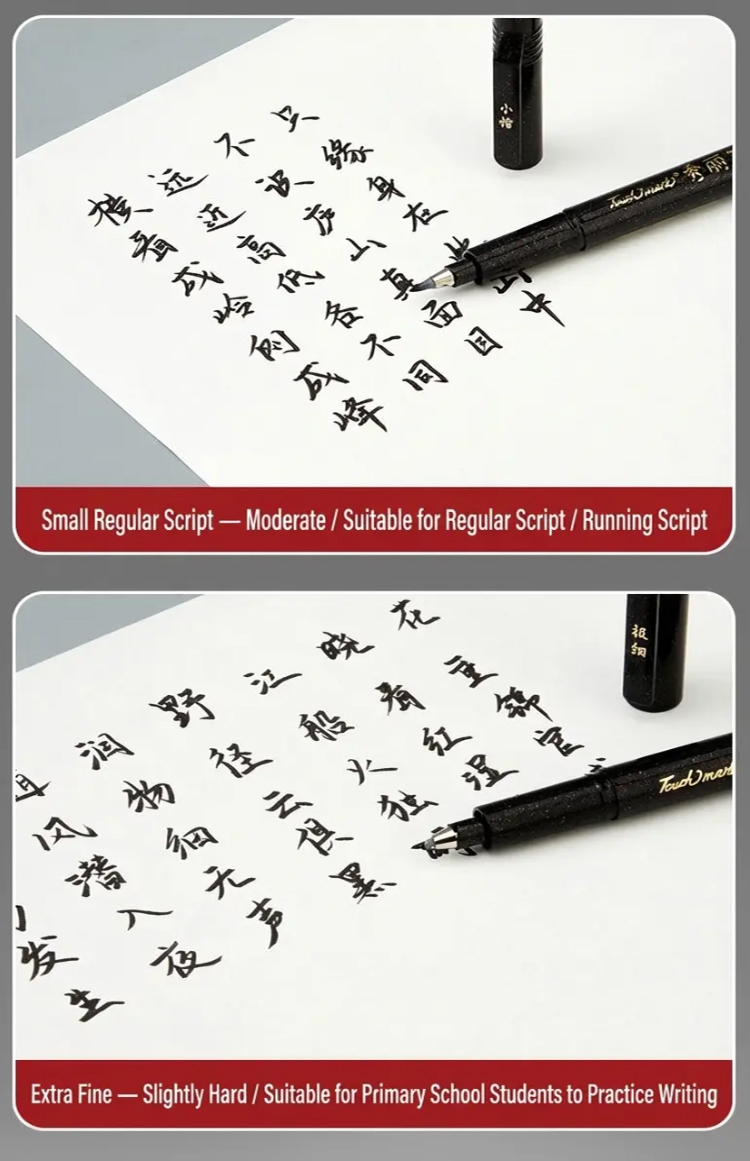 横看成岭侧成峰
远近高低各不同
不识庐山真面目
只缘身在此山中
小楷
Touch mark 秀丽
Small Regular Script — Moderate / Suitable for Regular Script / Running Script
发生
风潜入夜
润物细无声
野径云俱黑
江船火独
晓看红湿
花重锦官
极细
Touch mark
Extra Fine — Slightly Hard / Suitable for Primary School Students to Practice Writing